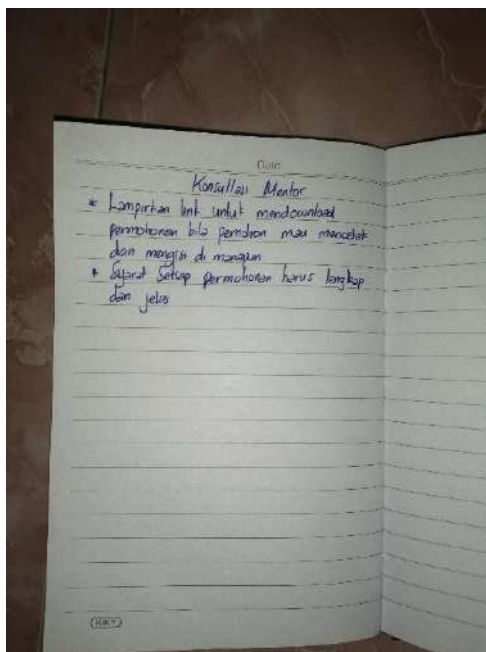 Date
Konsultasi Mentor
* Lampirkan link untuk mendownload
permohonan bila pemohon mau mencetak
dan mengisi di manapun
* Syarat Setiap permohonan harus lengkap
dan jelas
KIKY